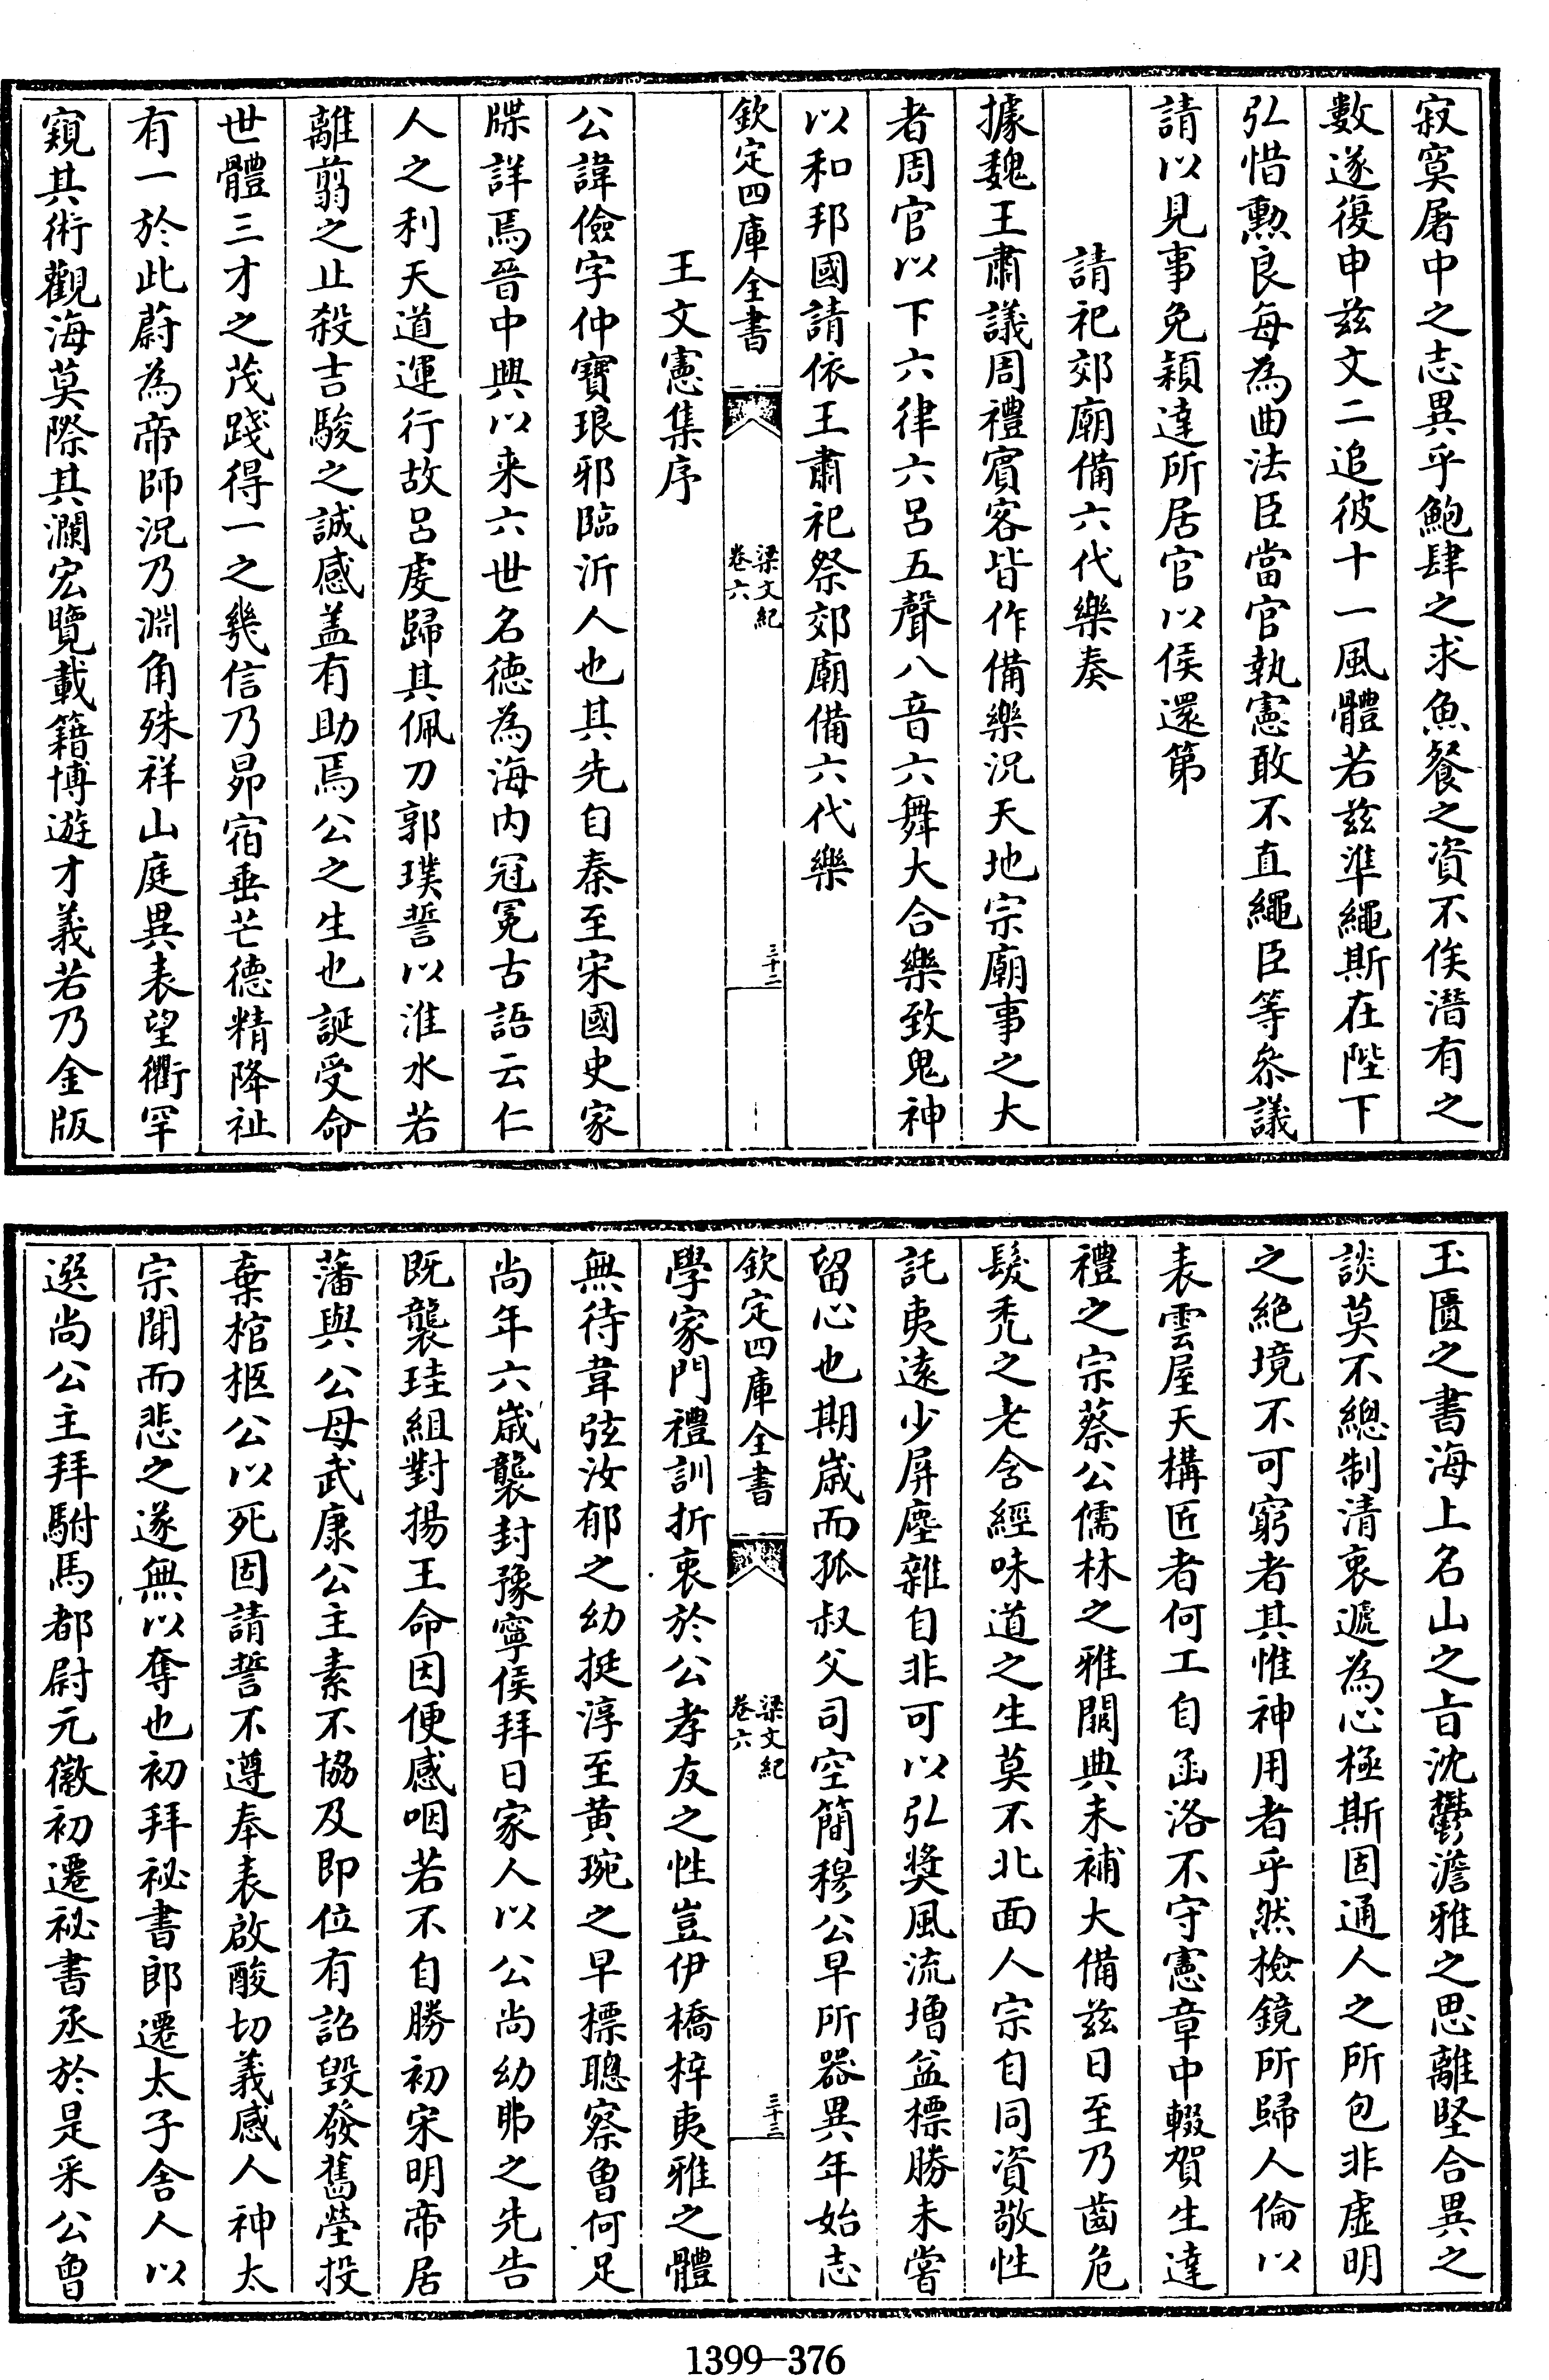 寂寞屠中之志異乎鮑肆之求魚餐之資不俟潛有之
數遂復申兹文二追彼十一風體若兹準繩斯在陛下
弘惜勲良每為曲法臣當官執憲敢不直繩臣等叅議
請以見事免穎達所居官以侯還第
請祀郊廟備六代樂奏
據魏王肅議周禮賓客皆作備樂況天地宗廟事之大
者周官以下六律六呂五聲八音六舞大合樂致鬼神
以和邦國請依王肅祀祭郊廟備六代樂
欽定四庫全書
梁文紀
卷六
三十二
王文憲集序
公諱儉字仲寶琅邪臨沂人也其先自秦至宋國史家
牒詳焉晉中興以来六世名徳為海内冠冕古語云仁
人之利天道運行故呂虔歸其佩刀郭璞誓以淮水若
離翦之止殺吉駿之誠感盖有助焉公之生也誕受命
世體三才之茂踐得一之幾信乃昴宿垂芒德精降祉
有一於此蔚為帝師況乃淵角殊祥山庭異表望衢罕
窺其術觀海莫際其瀾宏覽載籍博遊才義若乃金版
玉匱之書海上名山之旨沈鬱澹雅之思離堅合異之
談莫不總制清衷遞為心極斯固通人之所包非虚明
之絶境不可窮者其惟神用者乎然檢鏡所歸人倫以
表雲屋天構匠者何工自函洛不守憲章中輟賀生達
禮之宗蔡公儒林之雅闕典未補大備兹日至乃齒危
髮秃之老含經味道之生莫不北面人宗自同資敬性
託夷遠少屏塵雜自非可以弘奬風流增益標勝未嘗
留心也期歳而孤叔父司空簡穆公早所器異年始志
欽定四庫全書
梁文紀
卷六
三十三
學家門禮訓折衷於公孝友之性豈伊橋梓夷雅之體
無待韋弦汝郁之幼挺淳至黄琬之早標聰察曾何足
尚年六歳襲封豫寧侯拜日家人以公尚幼弗之先告
既襲珪組對揚王命因便感咽若不自勝初宋明帝居
藩與公母武康公主素不協及即位有詔毀發舊塋投
棄棺柩公以死固請誓不遵奉表啟酸切義感人神太
宗聞而悲之遂無以奪也初拜祕書郎遷太子舍人以
選尚公主拜駙馬都尉元徽初遷祕書丞於是采公曾
1399-376